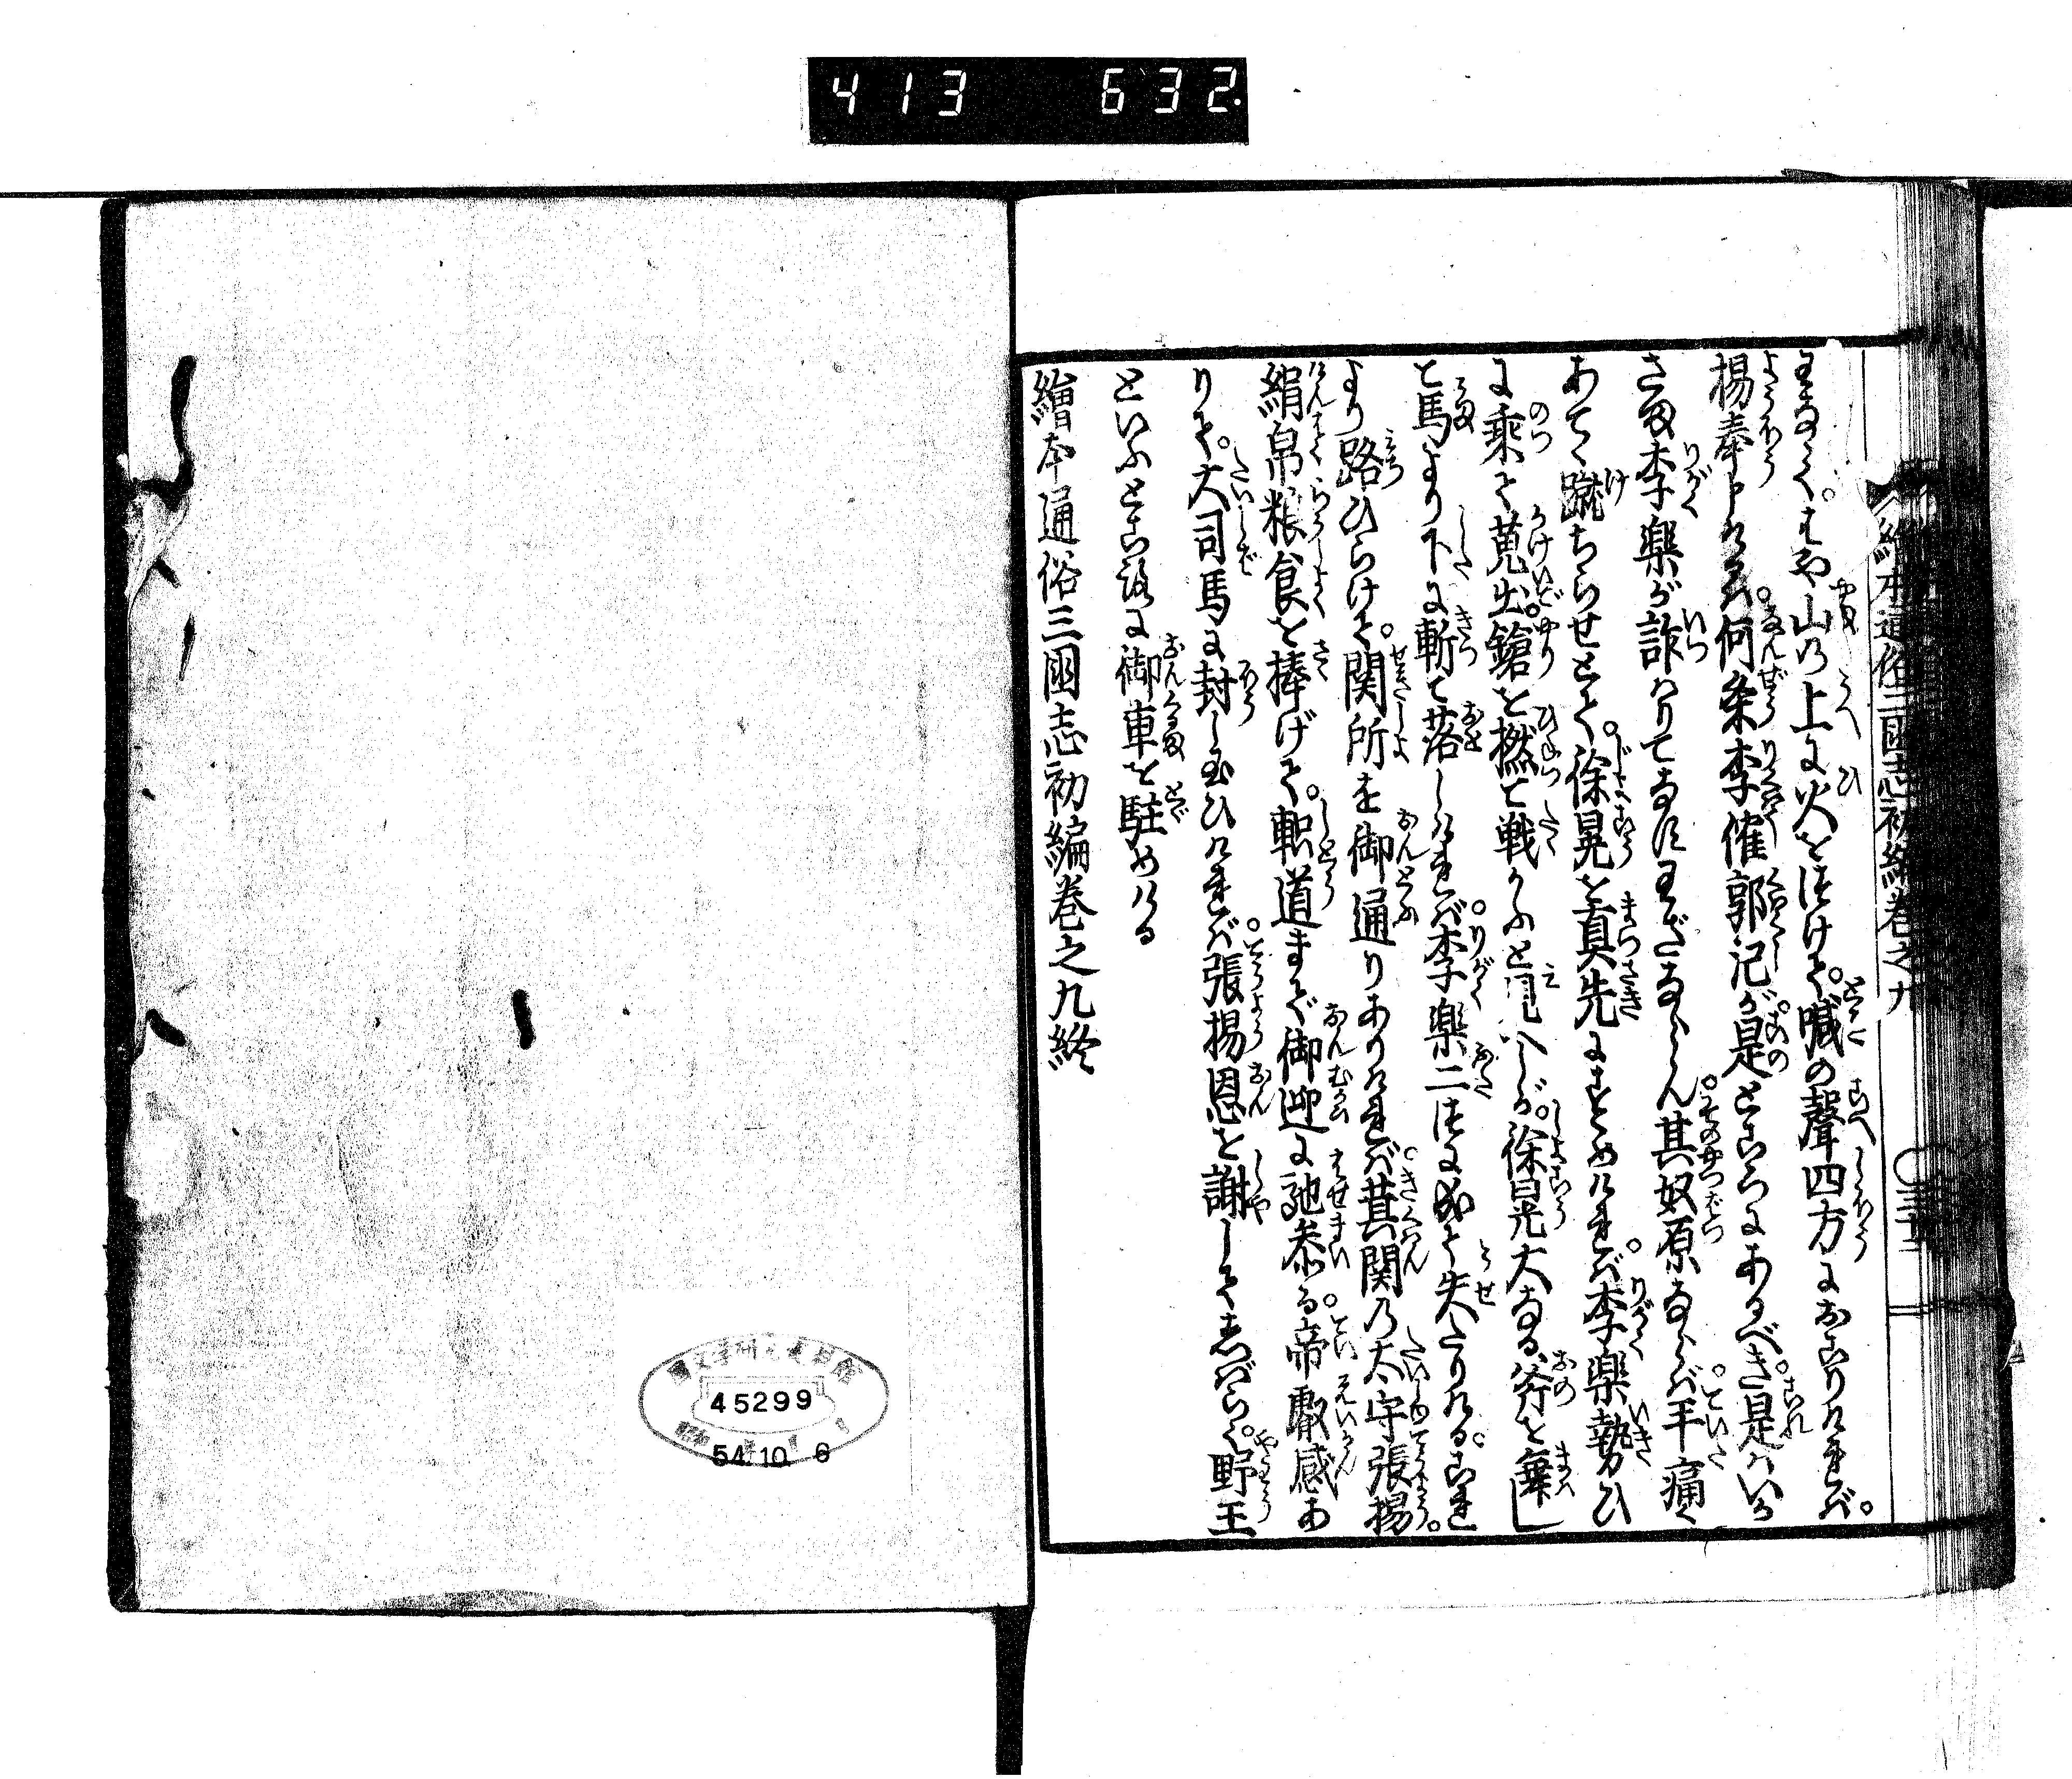 413 632
繪本通俗三國志初編巻之九
わなく。はや山の上に火をつけて。喊の聲四方におこりければ。
楊奉申けるは。何条李傕郭汜が是ところにあるべき。是はいか
さま李楽が詐はりてなすわざならん。其奴原ならば手痛く
あてゝ蹴ちらせとて。徐晃を真先にすゝめければ。李楽勢ひ
に乗て蒐出。鎗を撚て戦かふと見へしが。徐晃大なる斧を舞し
て馬より下に斬て落しければ。李楽二つに成て失たりける。これ
より路ひらけて。関所を御通りありければ。其関の太守張楊。
絹帛粮食を捧げて。軹道まで御迎に馳参る。帝叡感あ
りて。大司馬に封じ玉ひければ。張楊恩を謝してしばらく。野王
といふところに御車を駐めける
繪本通俗三國志初編巻之九終
45299
54.10.6